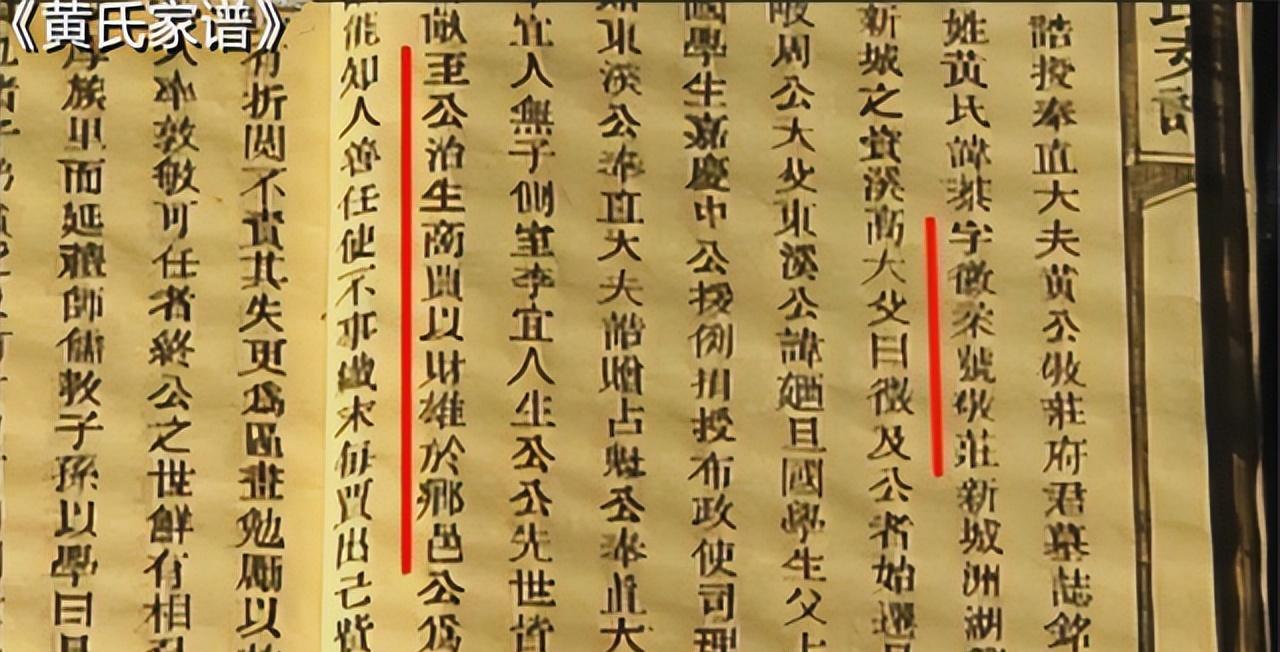 《黄氏家谱》
誥授奉直大夫黃公敬莊府君墓誌銘
姓黃氏諱某字徽柔號敬莊新城洲湖
新城之賓溪高大父曰徵及公者始遷
周公大父東溪公諱廼旦國學生父占
國學生嘉慶中公授例捐授布政使司理
東溪公奉直大夫誥贈占魁公奉直大
宜人無子側室李宜人生公公先世皆
至公治生商賈以財雄於鄉邑公爲
能知人善任使不事纖末每買出己貲
有折閱不責其失更爲區畫勉勵以
敦敏可任者終公之世鮮有相
族里而延禮師儒教子孫以學曰